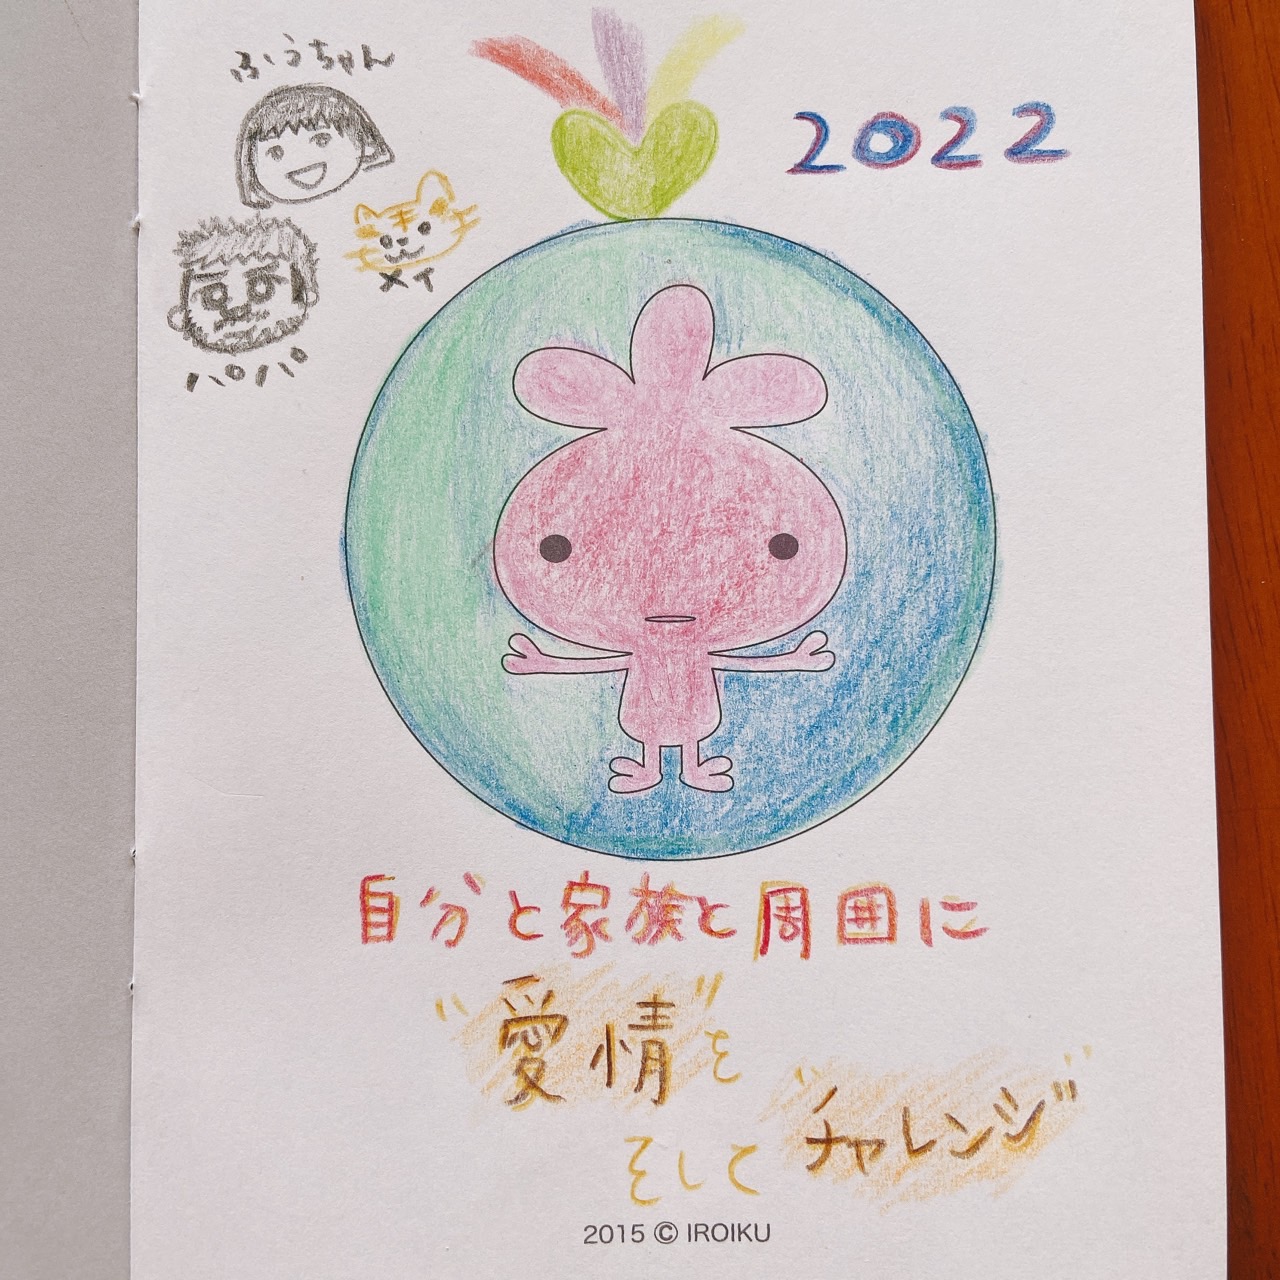 ふうちゃん
2022
メイ
パパ
自分と家族と周囲に
"愛情"を
そして "チャレンジ"
2015 © IROIKU